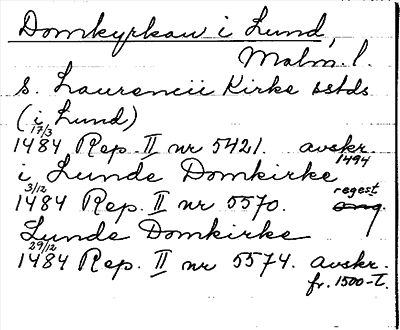 Domkyrkan i Lund,
Malm. l.
S. Laurencii Kirke sstds
(i Lund)
1484 17/3 Rep. II nr 5421. avskr. 1494
i Lunde Domkirke
1484 3/12 Rep. II nr 5570. regest
Lunde Domkirke
1484 29/12 Rep. II nr 5574. avskr.
fr. 1500-t.